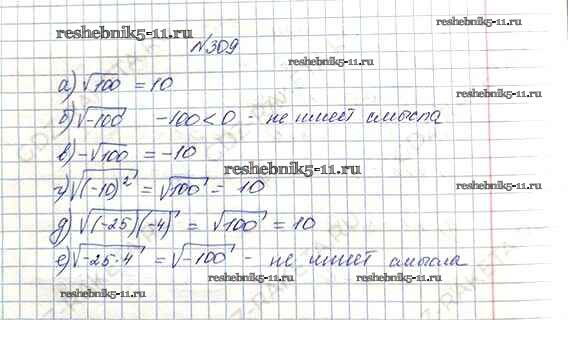 reshebnik5-11.ru
reshebnik5-11.ru
№309
reshebnik5-11.ru
а) √100 = 10
reshebnik5-11.ru
б) √-100 -100 < 0 - не имеет смысла
в) -√100 = -10
reshebnik5-11.ru
г) √(-10)² = √100 = 10
reshebnik5-11.ru
reshebnik5-11.ru
д) √(-25)(-4) = √100 = 10
е) √-25·4 = √-100 - не имеет смысла
reshebnik5-11.ru
reshebnik5-11.ru
reshebnik5-11.ru